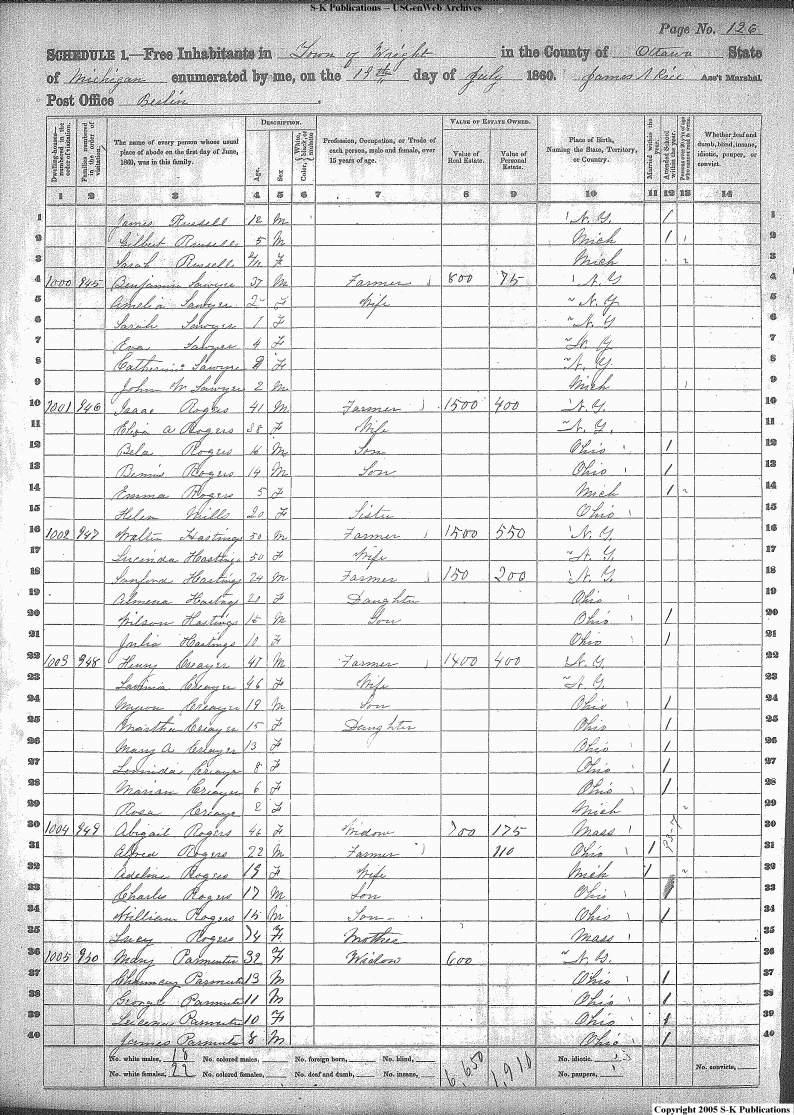 S-K Publications – USGenWeb Archives
Page No. 126
SCHEDULE 1.—Free Inhabitants in Town of Wright in the County of Ottawa State
of Michigan enumerated by me, on the 19th day of July 1860. James A Rice Ass't Marshal.
Post Office Berlin
Dwelling-houses— numbered in the order of visitation.
Families numbered in the order of visitation.
The name of every person whose usual place of abode on the first day of June, 1860, was in this family.
DESCRIPTION.
Age.
Sex
Color, White, black, or mulatto
Profession, Occupation, or Trade of each person, male and female, over 15 years of age.
VALUE OF ESTATE OWNED.
Value of Real Estate.
Value of Personal Estate.
Place of Birth, Naming the State, Territory, or Country.
Married within the year.
Attended School within the year.
Persons over 20 y'rs of age who cannot read & write.
Whether deaf and dumb, blind, insane, idiotic, pauper, or convict.
1 2 3 4 5 6 7 8 9 10 11 12 13 14
1 James Russell 12 M N.Y. / 1
2 Gilbert Russell 5 M Mich / 2
3 Sarah Russell F Mich 3
4 1000 945 Benjamin Sawyer 37 M Farmer 800 75 N.Y 4
5 Amelia Sawyer F Wife N.Y. 5
6 Sarah Sawyer F N.Y 6
7 Eva Sawyer 4 F N.Y 7
8 Catherine Sawyer F N.Y. 8
9 John W Sawyer 2 M Mich 9
10 1001 946 Isaac Rogers 41 M Farmer 1500 400 N.Y. 10
11 Eliza A Rogers 38 F Wife N.Y. 11
12 Bela Rogers 16 M Son Ohio / 12
13 Bemis Rogers 14 M Son Ohio / 13
14 Emma Rogers 5 F Mich / 14
15 Helen Mills 20 F Sister Ohio 15
16 1002 947 Walter Hastings 50 M Farmer 1500 550 N.Y. 16
17 Lucinda Hastings 50 F Wife N.Y. 17
18 Sanford Hastings 24 M Farmer 150 200 N.Y. 18
19 Almena Hastings 21 F Daughter Ohio 19
20 Wilson Hastings 15 M Son Ohio / 20
21 Julia Hastings 10 F Ohio / 21
22 1003 948 Henry Creager 47 M Farmer 1400 400 N.Y. 22
23 Lavinia Creager 46 F Wife N.Y. 23
24 Myron Creager 19 M Son Ohio / 24
25 Martha Creager 15 F Daughter Ohio / 25
26 Mary A Creager 13 F Ohio / 26
27 Lovinda Creager 8 F Ohio / 27
28 Marian Creager 6 F Ohio / 28
29 Rosa Creager 2 F Mich 29
30 1004 949 Abigail Rogers 46 F Widow 700 175 Mass 30
31 Alfred Rogers 22 M Farmer 110 Ohio / 31
32 Adeline Rogers 19 F Wife Mich / 32
33 Charles Rogers 17 M Son Ohio 33
34 William Rogers 15 M Son Ohio / 34
35 Lucy Rogers 74 F Mother Mass 35
36 1005 950 Mary Parmenter 32 F Widow 600 N.Y. 36
37 Chauncey Parmenter 13 M Ohio / 37
38 George Parmenter 11 M Ohio / 38
39 Parmenter 10 F Ohio / 39
40 James Parmenter 8 M Ohio / 40
No. white males, 18 No. colored males, No. foreign born, No. blind, 6,650 1,910 No. idiotic,
No. white females, 22 No. colored females, No. deaf and dumb, No. insane, No. paupers, No. convicts,
Copyright 2005 S-K Publications